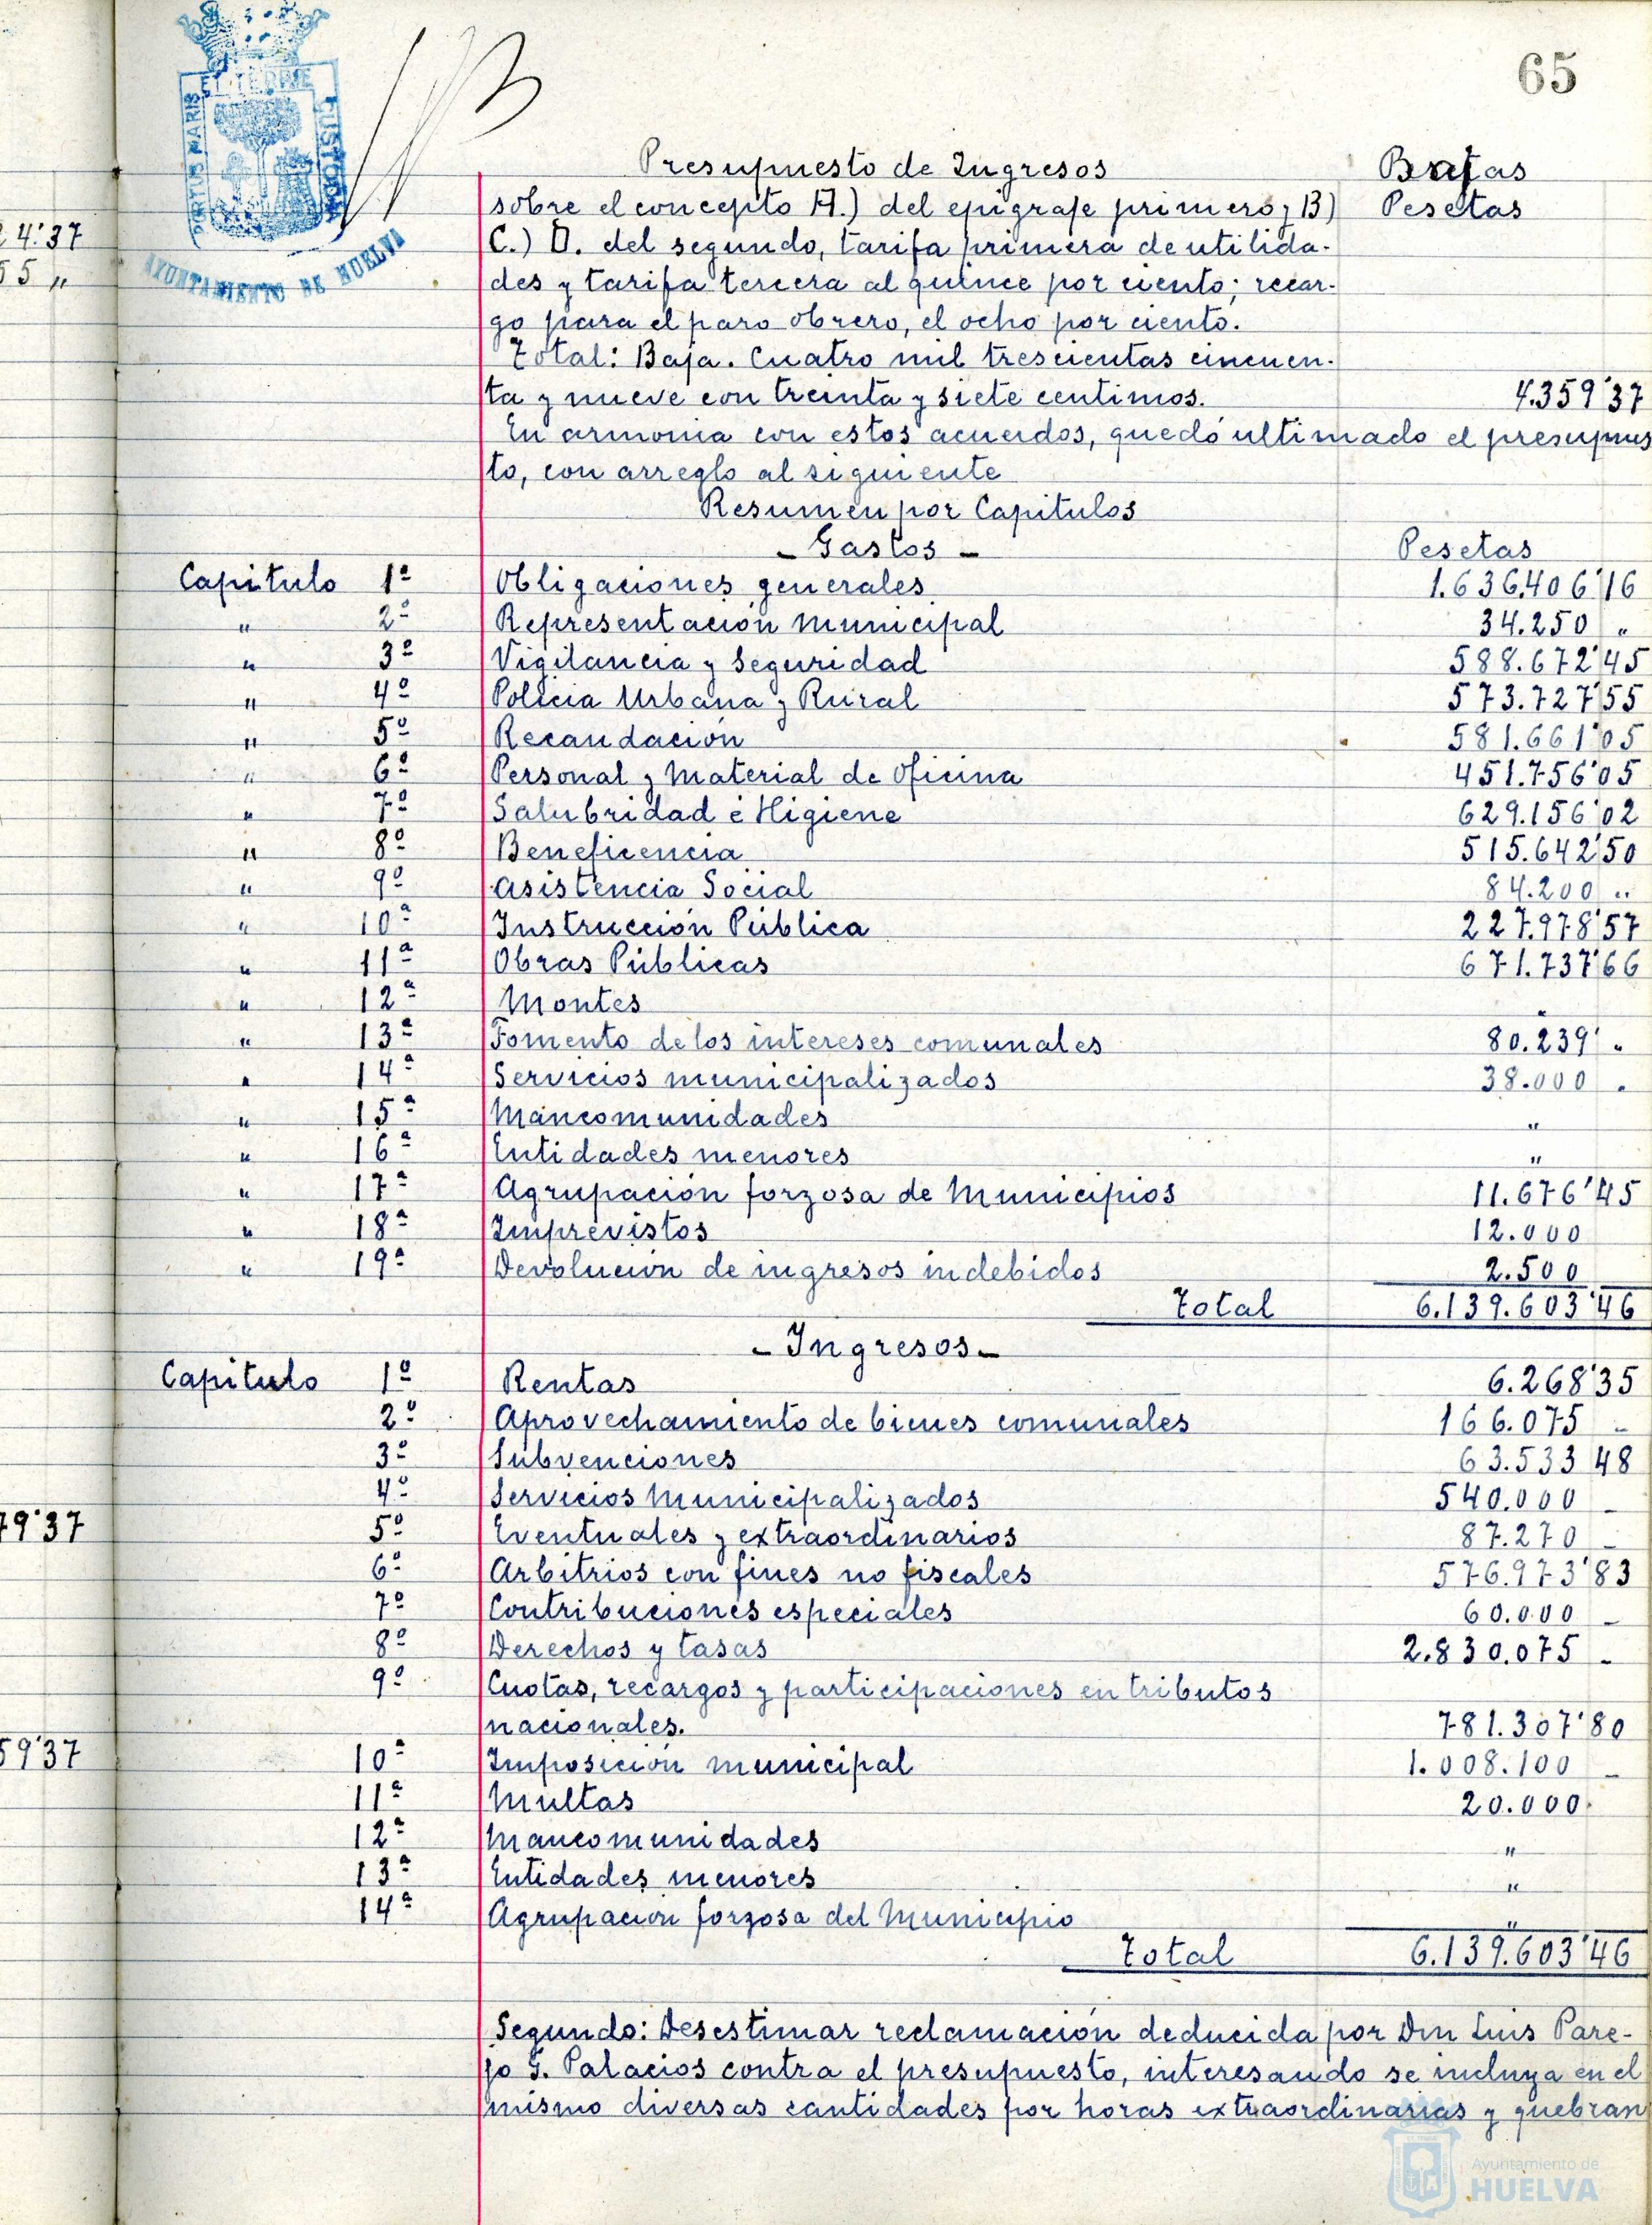 65
PORTUS MARIS
ET TERRE
CUSTODIA
AYUNTAMIENTO DE HUELVA
Presupuesto de Ingresos Bajas
sobre el concepto A.) del epigrafe primero, B) Pesetas
C.) D. del segundo, tarifa primera de utilida-
des y tarifa tercera al quince por ciento; recar-
go para el paro obrero, el ocho por ciento.
Total: Baja. Cuatro mil trescientas cincuen-
ta y nueve con treinta y siete centimos. 4.359'37
En armonia con estos acuerdos, quedó ultimado el presupues
to, con arreglo al siguiente
Resumen por Capitulos
- Gastos -
Pesetas
Capitulo 1º Obligaciones generales 1.636.406'16
" 2º Representación municipal 34.250 "
" 3º Vigilancia y Seguridad 588.672'45
" 4º Policia Urbana y Rural 573.727'55
" 5º Recaudación 581.661'05
" 6º Personal y material de oficina 451.756'05
" 7º Salubridad é Higiene 629.156'02
" 8º Beneficencia 515.642'50
" 9º Asistencia Social 84.200 "
" 10º Instrucción Pública 227.978'57
" 11ª Obras Públicas 671.737'66
" 12ª Montes "
" 13ª Fomento de los intereses comunales 80.239' "
" 14ª Servicios municipalizados 38.000 "
" 15ª Mancomunidades "
" 16ª Entidades menores "
" 17ª Agrupación forzosa de Municipios 11.676'45
" 18ª Imprevistos 12.000
" 19ª Devolución de ingresos indebidos 2.500
Total 6.139.603'46
- Ingresos -
Capitulo 1º Rentas 6.268'35
2º Aprovechamiento de bienes comunales 166.075 -
3º Subvenciones 63.533 48
4º Servicios Municipalizados 540.000 -
5º Eventuales y extraordinarios 87.270 -
6º Arbitrios con fines no fiscales 576.973'83
7º Contribuciones especiales 60.000 -
8º Derechos y tasas 2.830.075 -
9º Cuotas, recargos y participaciones en tributos
nacionales. 781.307'80
10ª Imposición municipal 1.008.100 -
11ª Multas 20.000.
12ª Mancomunidades "
13ª Entidades menores "
14ª Agrupacion forzosa del Municipio "
Total 6.139.603'46
Segundo: Desestimar reclamación deducida por Don Luis Pare-
jo G. Palacios contra el presupuesto, interesando se incluya en el
mismo diversas cantidades por horas extraordinarias y quebran
4.'37
55 "
79'37
59'37
Ayuntamiento de
HUELVA